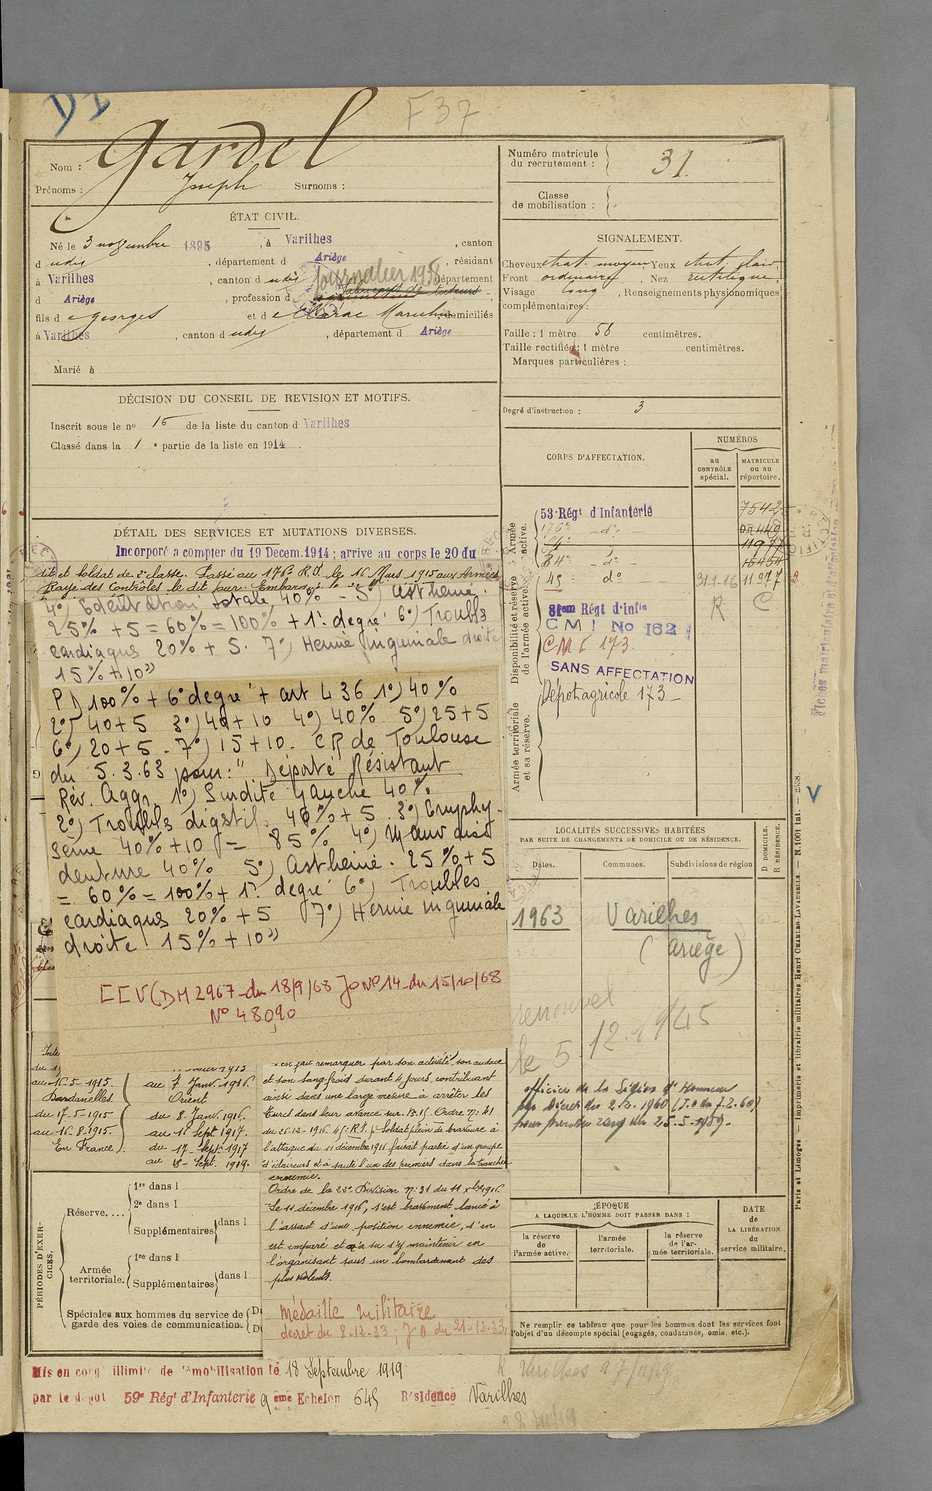 D I
F 37
Nom : Gardel
Prénoms : Joseph Surnoms :
ÉTAT CIVIL.
Né le 3 novembre 1895, à Varilhes, canton
d udit, département d Ariège, résidant
à Varilhes, canton d udit Journalier 1938 département
d Ariège, profession d
fils d e Georges et d e Marac domiciliés
à Varilhes, canton d udit, département d Ariège
Marié à
DÉCISION DU CONSEIL DE REVISION ET MOTIFS.
Inscrit sous le no 15 de la liste du canton d Varilhes
Classé dans la 1 e partie de la liste en 1914.
DÉTAIL DES SERVICES ET MUTATIONS DIVERSES.
Incorporé a compter du 19 Décem. 1914 ; arrive au corps le 20 du
dit et Soldat de 2e classe. Passé au 176e R.I. le 16 Mars 1915 aux Armées
Rayé des Contrôles le dit jour. Embarqué le
4°) Edentation totale 40% - 5°) asthénie.
25% + 5 = 60% = 100% + 1. degré 6°) Troubles
cardiaques 20% + 5. 7°) Hernie inguinale droite
15% + 10"
P D 100% + 6° degré + art L 36 1°) 40%
2°) 40+5 3°) 40+10 4°) 40% 5°) 25+5
6°) 20+5 - 7°) 15+10. CR de Toulouse
du 5.3.63 pour: " Déporté Résistant
Rév. Aggr. 1°) Surdité gauche 40%
2°) Troubles digstif. 40% + 5. 3°) Emphy-
sème 40% + 10 = 85% 4°) Mauvaise
denture 40% 5°) Asthénie. 25% + 5
= 60% = 100% + 1. degré 6°) Troubles
cardiaques 20% + 5 7°) Hernie inguinale
droite 15% + 10"
CCV (DM 2967 du 18/9/68 Jo No 14 du 15/10/68
No 48090
au 16-5-1915. au 7 Janv. 1916.
Dardanelles Orient
du 17.5.1915 du 8. Janv. 1916.
au 16.8.1915. au 16 Sept. 1917.
En France du 17. Sept. 1917
au 18 - Sept. 1919.
s'en fait remarquer par son activité, son audace
et son sang froid durant 4 jours, contribuant
ainsi dans une large mesure à arrêter les
Turcs dans leur avance sur. Ordre No 41
du 26-12-1916. Soldat plein de bravoure à
l'attaque du 11 décembre 1916 faisait partie d'un groupe
d'éclaireurs et a sauté l'un des premiers dans la tranchée
ennemie.
Ordre de la Division No 31 du 11 xbre 1916.
Le 11 décembre 1916, s'est bravement lancé à
l'assaut d'une position ennemie, s'en
est emparé et a su s'y maintenir en
l'organisant sous un bombardement des
plus violents.
Médaille militaire
décret du 8-12-33 ; J O du 21-12-33
PÉRIODES D'EXERCICES.
Réserve. ...
1re dans l
2e dans l
Supplémentaires dans l
Armée territoriale.
1re dans l
Supplémentaires dans l
Spéciales aux hommes du service de
garde des voies de communication.
Mis en congé illimité de démobilisation le 18 Septembre 1919
par le dépôt 59e Régt d'Infanterie 9 eme Echelon 645 Résidence Varilhes
Numéro matricule
du recrutement : 31
Classe
de mobilisation :
SIGNALEMENT.
Cheveux chat. moyen Yeux chat. clair
Front ordinaire, Nez rectiligne
Visage long, Renseignements physionomiques
complémentaires :
Taille : 1 mètre 58 centimètres.
Taille rectifiée : 1 mètre centimètres.
Marques particulières :
Degré d'instruction : 3
CORPS D'AFFECTATION.
NUMÉROS
AU CONTRÔLE spécial.
MATRICULE OU AU répertoire.
Armée active.
53e Régt d'Infanterie 7542
176e - do -
4e 11977
84e - do - 16454
4e do 31.1.16 11977
Disponibilité et réserve de l'armée active.
81em Régt d'infie R C
CMI No 162
CMI 173
SANS AFFECTATION
Dépot agricole 173 -
Armée territoriale et sa réserve.
LOCALITÉS SUCCESSIVES HABITÉES
PAR SUITE DE CHANGEMENTS DE DOMICILE OU DE RÉSIDENCE.
Dates. Communes. Subdivisions de région D DOMICILE. R RÉSIDENCE.
1963 Varilhes
(Ariège)
renouvel
le 5 12/9/45
Officier de la Légion d'Honneur
par décret du 2.2.1960 (J.O du 7.2.60)
pour prendre rang du 25-5-1959.
ÉPOQUE
A LAQUELLE L'HOMME DOIT PASSER DANS :
la réserve de l'armée active. l'armée territoriale. la réserve de l'armée territoriale.
DATE DE LA LIBÉRATION du service militaire.
Ne remplir ce tableau que pour les hommes dont les services font
l'objet d'un décompte spécial (engagés, condamnés, omis, etc.).
Varilhes
Fiches matriculaire et d'
Paris et Limoges. — Imprimerie et librairie militaires Henri CHARLES-LAVAUZELLE. — N. 1001 int. — 2838.
V